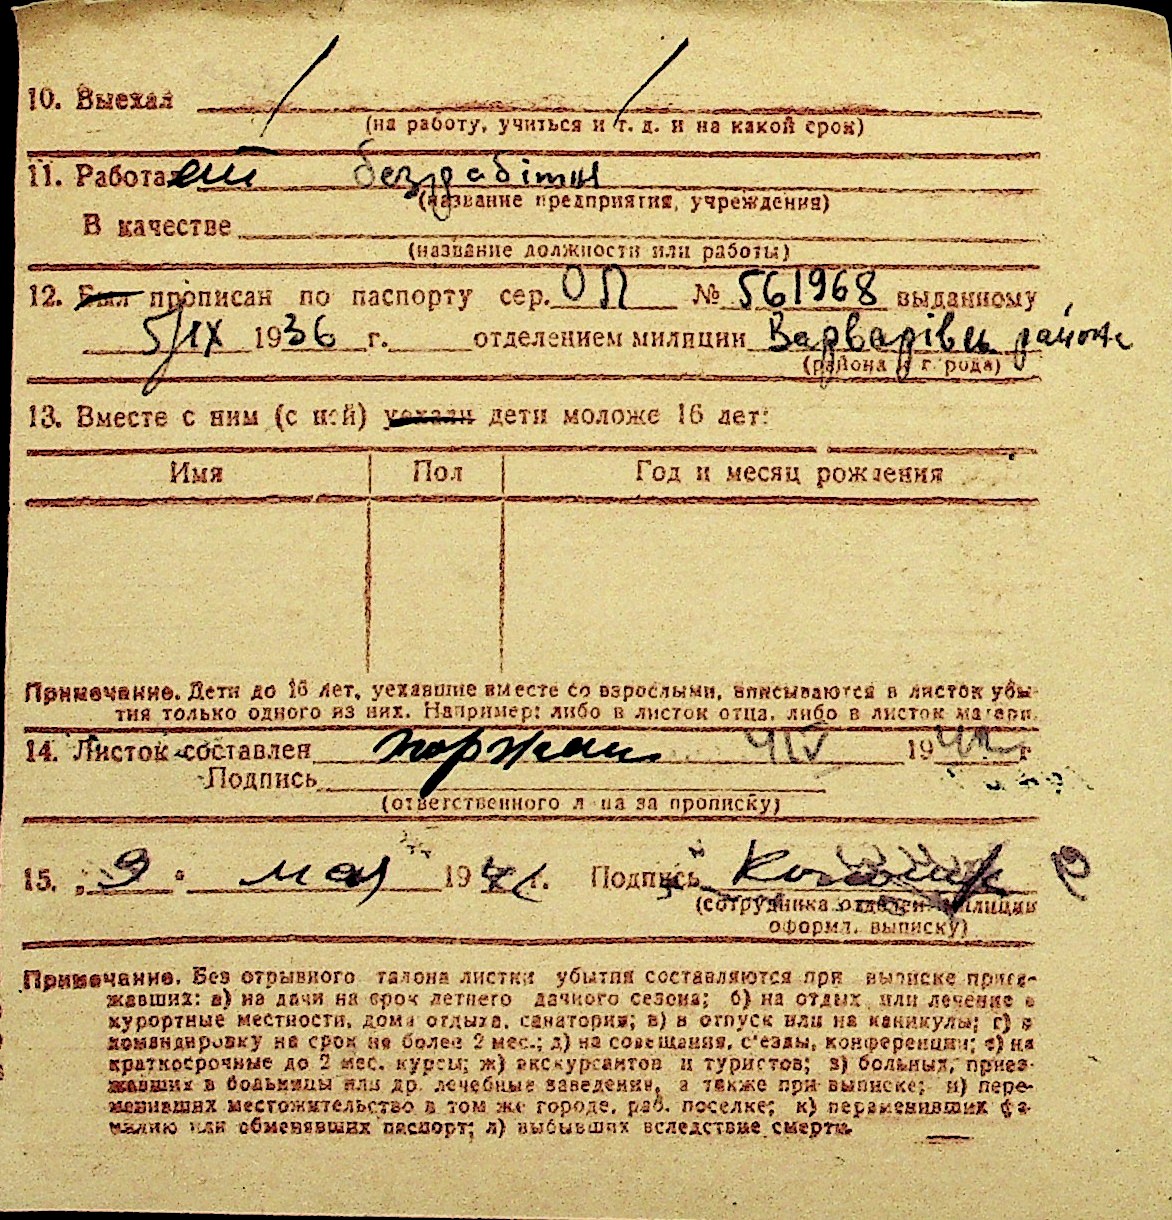 10. Выехал
(на работу, учиться и т. д. и на какой срок)
11. Работает безрабітна
(название предприятия, учреждения)
В качестве
(название должности или работы)
12. Был прописан по паспорту сер. ОП № 561968 выданному
5/IX 1936 г. отделением милиции Варварівськ района
(района и города)
13. Вместе с ним (с ней) уехали дети моложе 16 лет:
Имя Пол Год и месяц рождения
Примечание. Дети до 16 лет, уехавшие вместе со взрослыми, вписываются в листок убы-
тия только одного из них. Например: либо в листок отца, либо в листок матери.
14. Листок составлен 4/IV 1942 г
Подпись
(ответственного лица за прописку)
15. „9" мая 194 г. Подпись
(сотрудника отделен. милиции
оформл. выписку)
Примечание. Без отрывного талона листки убытия составляются при выписке приез-
жавших: а) на дачи на срок летнего дачного сезона; б) на отдых или лечение в
курортные местности, дома отдыха, санатория; в) в отпуск или на каникулы; г) в
командировку на срок не более 2 мес.; д) на совещания, с'езды, конференции; е) на
краткосрочные до 2 мес. курсы; ж) экскурсантов и туристов; з) больных, приез-
жавших в больницы или др. лечебные заведения, а также при выписке; и) пере-
менивших местожительство в том же городе, раб. поселке; к) переменивших фа-
милию или обменявших паспорт; л) выбывших вследствие смерти.